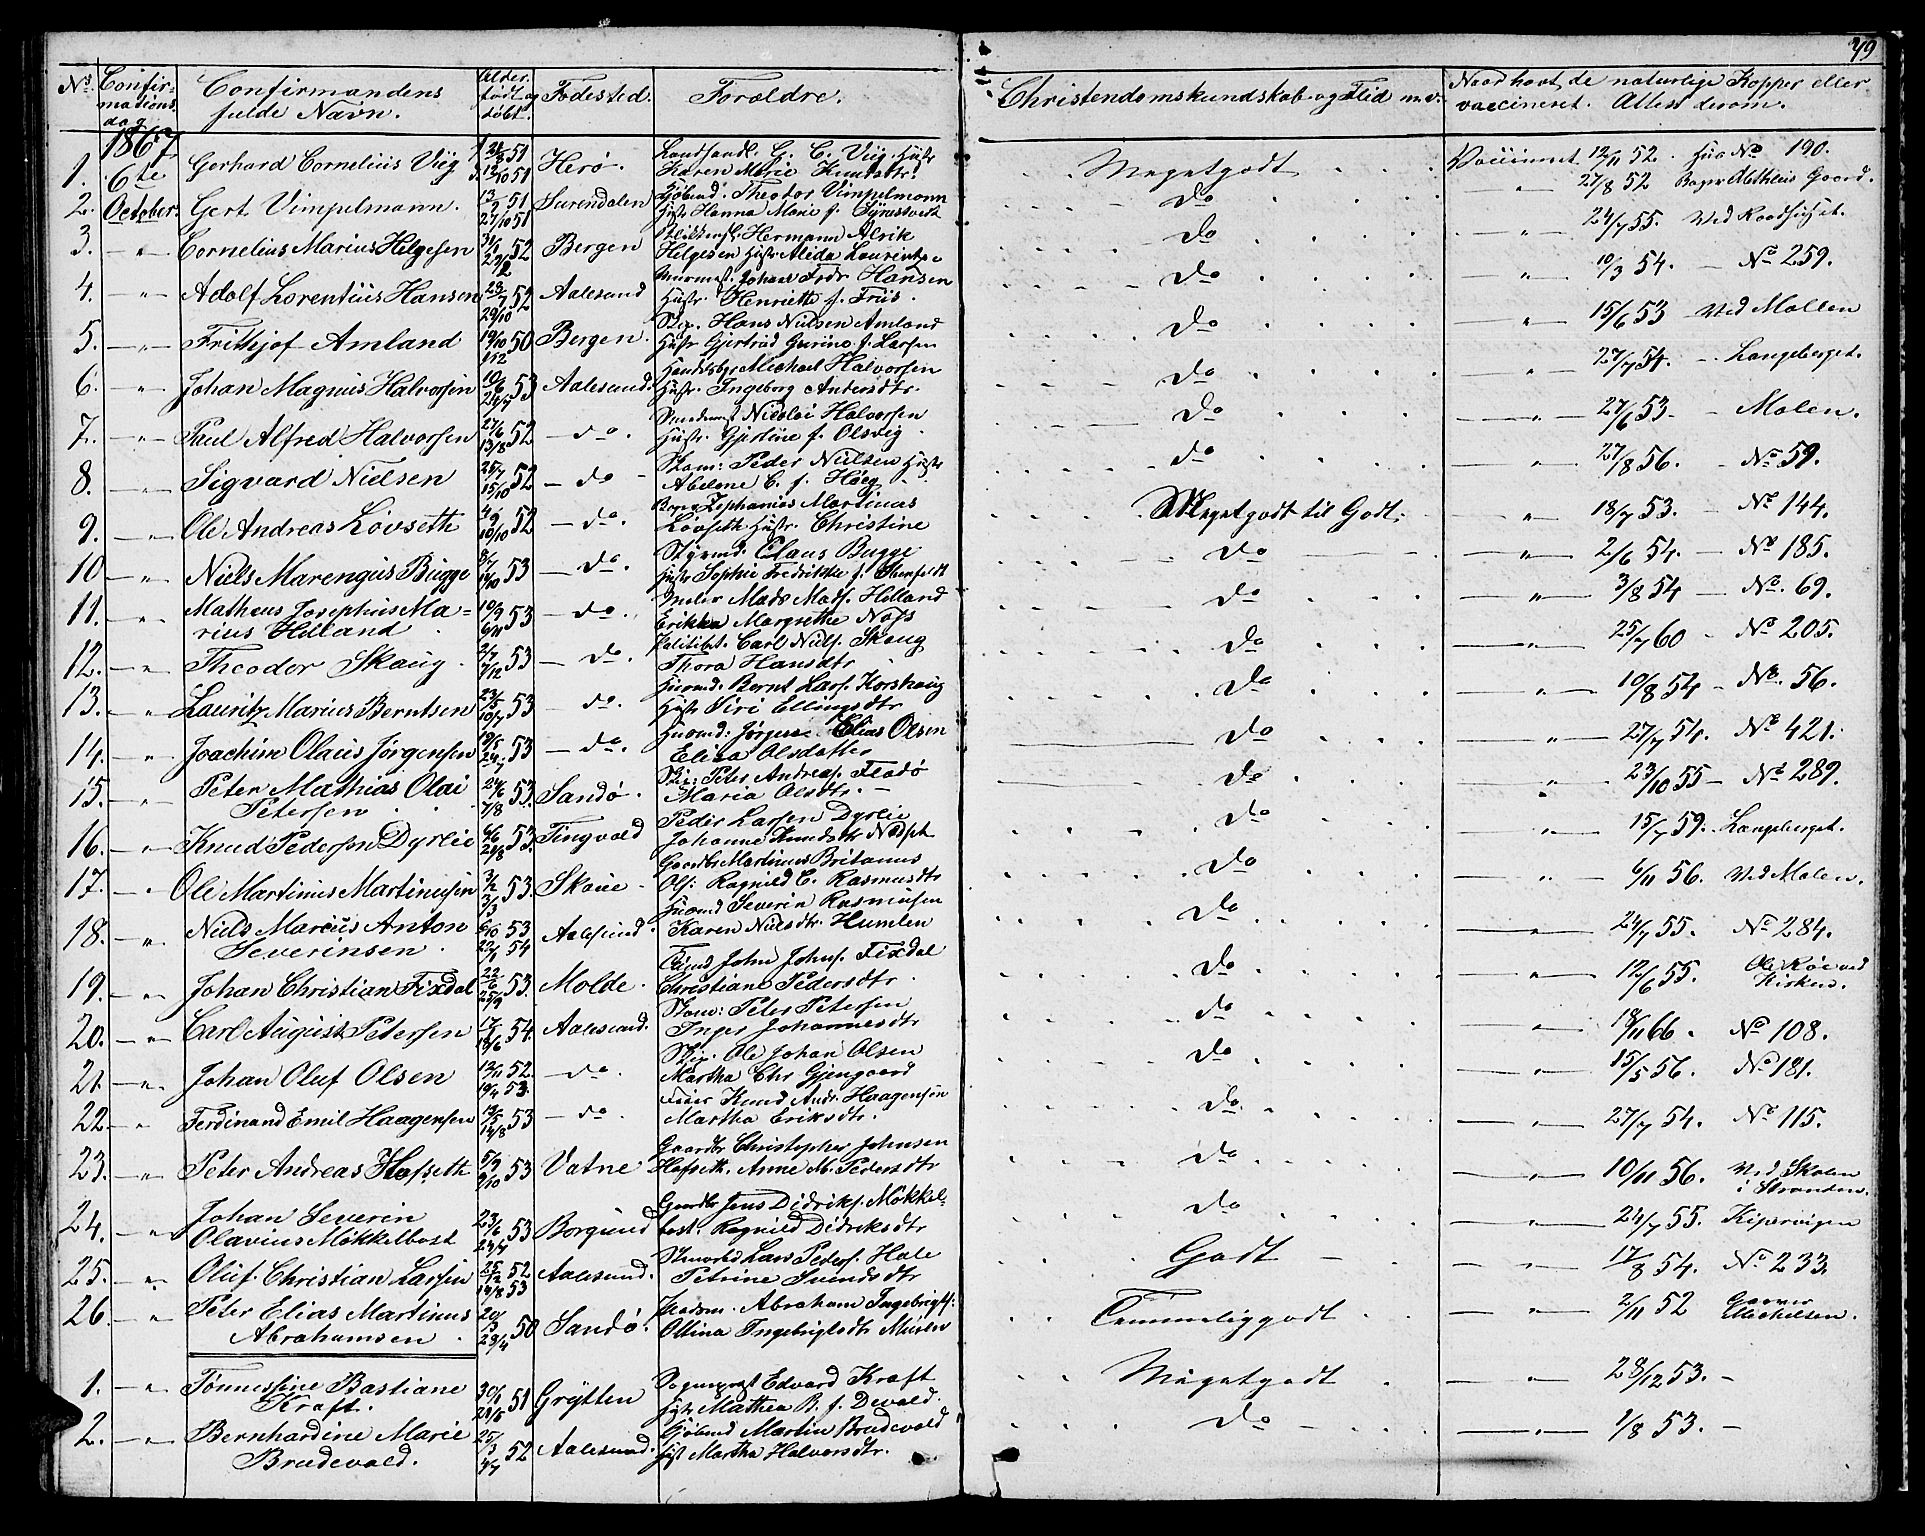 79
No. Confirmations dag Confirmandens fulde Navn. Alder. født og døbt. Fødested. Forældre. Christendomskundskab og Flid m.v. Naar havt de naturlige Kopper eller vaccineret. Attest derom.
1867
1. 6te Gerhard Cornelius Viig 51 12/10 51 Herø. Landhandl. G. C. Viig. Hustr Karen Marie Knutsdtr. Megetgodt Vaccineret 12/11 52. No 190.
2. October. Gert Vimpelmann. 51 27/10 51 Surendalen Kjøbmd. Theodor Vimpelmann Hustr Hanna Marie f. do " 27/8 52 Gaard.
3. " Cornelius Marius Helgesen 52 Bergen Hermann Alrik Helgesen Hustr Alida Laurentze do " 24/7 55. Ved Raadhuset.
4. " Adolf Lorentius Hansen 52 29/10 Aalesund Murmest. Johan Fredr Hansen Hustr. Henriette f. Friis. do " 10/3 54. No 259.
5. " Frithjof Amland 19/10 50 1/12 Bergen. Skip. Hans Nielsen Amland Hustr Gjertrud Gurine f. Larsen do " 15/6 53 Ved Mollen
6. " Johan Magnus Halvorsen 10/6 53 24/7 Aalesund. Handelsbgr Michael Halvorsen Hustr. Ingeborg Andersdtr. do " 27/7 54. Langeberget.
7. " Paul Alfred Halvorsen 27/6 52 13/8 do. Nicolai Halvorsen Hustr. Gjertine f. Olsvig do " 27/6 53. Molen.
8. " Sigvard Nielsen 25/7 52 15/10 do Skom: Peder Nielsen Hustr Abelone C. f. Høeg do " 27/8 56. No 59.
9. " Ole Andreas Løvseth 4/9 52 10/10 do. Zephanias Martinus Løvseth Hustr. Christine Megetgodt til Godt. " 18/7 53. No 144.
10 " Niels Marengius Bugge 8/7 53 do. Styrmd. Claus Bugge Hustr Sophie Fredrikke f. do " 2/6 54. No 185.
11. " Matheus Josephus Marius Helland 10/9 53 6/11 do. Maler Mads Mads. Helland Erikka Margrethe Nass do " 3/8 54 No. 69.
12. " Theodor Skaug 2/7 53 7/12 do. Politibt. Carl Niels. Skaug Thora Hansdtr do " 25/7 60 No 205.
13. " Lauritz Marius Berntsen 23/5 53 10/7 do. Huusmd. Bernt Lars. Korshaug Hustr Siri Ellingsdtr do " 10/8 54 No. 56.
14. " Joachim Olaus Jørgensen 19/5 53 24/7 do. Huusmd: Jørgen Elias Olsen Elisa Olsdatter do " 27/7 54. No 421.
15. " Peter Mathias Olai Petersen 24/6 53 7/8 Sandø. Skip: Peter Andreas. Flødø Maria Olsdtr. do " 23/10 55 No 289.
16. " Knud Pedersen Dyrlie 6/6 53 28/8 Tingvold Peder Larsen Dyrlie Johanne Knudsdtr do " 15/7 59. Langeberget.
17. " Ole Martinus Martinussen 3/2 53. Skoue Gaardbr Martinus Britanus Ols: Ragnild C. Rasmusdtr do " 6/11 56. Ved Molen.
18. " Niels Marius Anton Severinsen. 53 22/1 54 Aalesund. Huusmd Severin Rasmussen Karen Nielsdtr. Humlen do " 24/7 55. No 284.
19. " Johan Christian Fixdal 22/6 53. 25/9 Molde. John Johns. Fixdal Christiane Pedersdtr do " 12/6 55. Ole Røe ved Kirken.
20. " Carl August Petersen 54. 18/6 Aalesund. Skom: Peter Petersen Inger Johannesdtr do " 18/11 66. No 108.
21. " Johan Oluf Olsen 13/11 52. 19/4 53. do. Skip. Ole Johan Olsen Martha Chr Gjengaard do " 15/5 56. No 181.
22. " Ferdinand Emil Haagensen 53 14/8 do Knud Andr. Haagensen Martha Eriksdtr. do " 27/7 54. No 115.
23. " Peter Andreas Hofseth 5/9 53 9/10 Vatne Gaardbr Christopher Johnsen Hofseth. Anne M. Pedersdtr do " 10/11 56. Ved Skolen i Stranden.
24. " Johan Severin Olavius Møkkelbost 23/6 53 24/7 Borgund Gaardbr Jens Didriks. Møkkelbost. Ragnild Didriksdtr do " 24/7 55. Kipervigen
25. " Oluf Christian Larsen 25/12 52 14/8 53 Aalesund. Lars Peders. Hole Petrine Svendsdtr Godt " 17/8 54. No 233.
26. " Peter Elias Martinus Abrahamsen. 20/3 50 28/4 Sandø. Abraham Ingebrigts: Oltina Ingebrigtsdtr Temmeliggodt " 2/11 52 Michelsen.
1. " Tønnesine Bastiane Kraft. 30/6 51 24/8 Grytten Sognepræst Edvard Kraft Hustr Mathea B. f. Devold. Megetgodt " 28/12 53.
2. " Bernhardine Marie Brudevold. 25/3 52 4/7 Aalesund. Kjøbmd Martin Brudevold Hust Martha Halvorsdtr. do " 1/8 53.